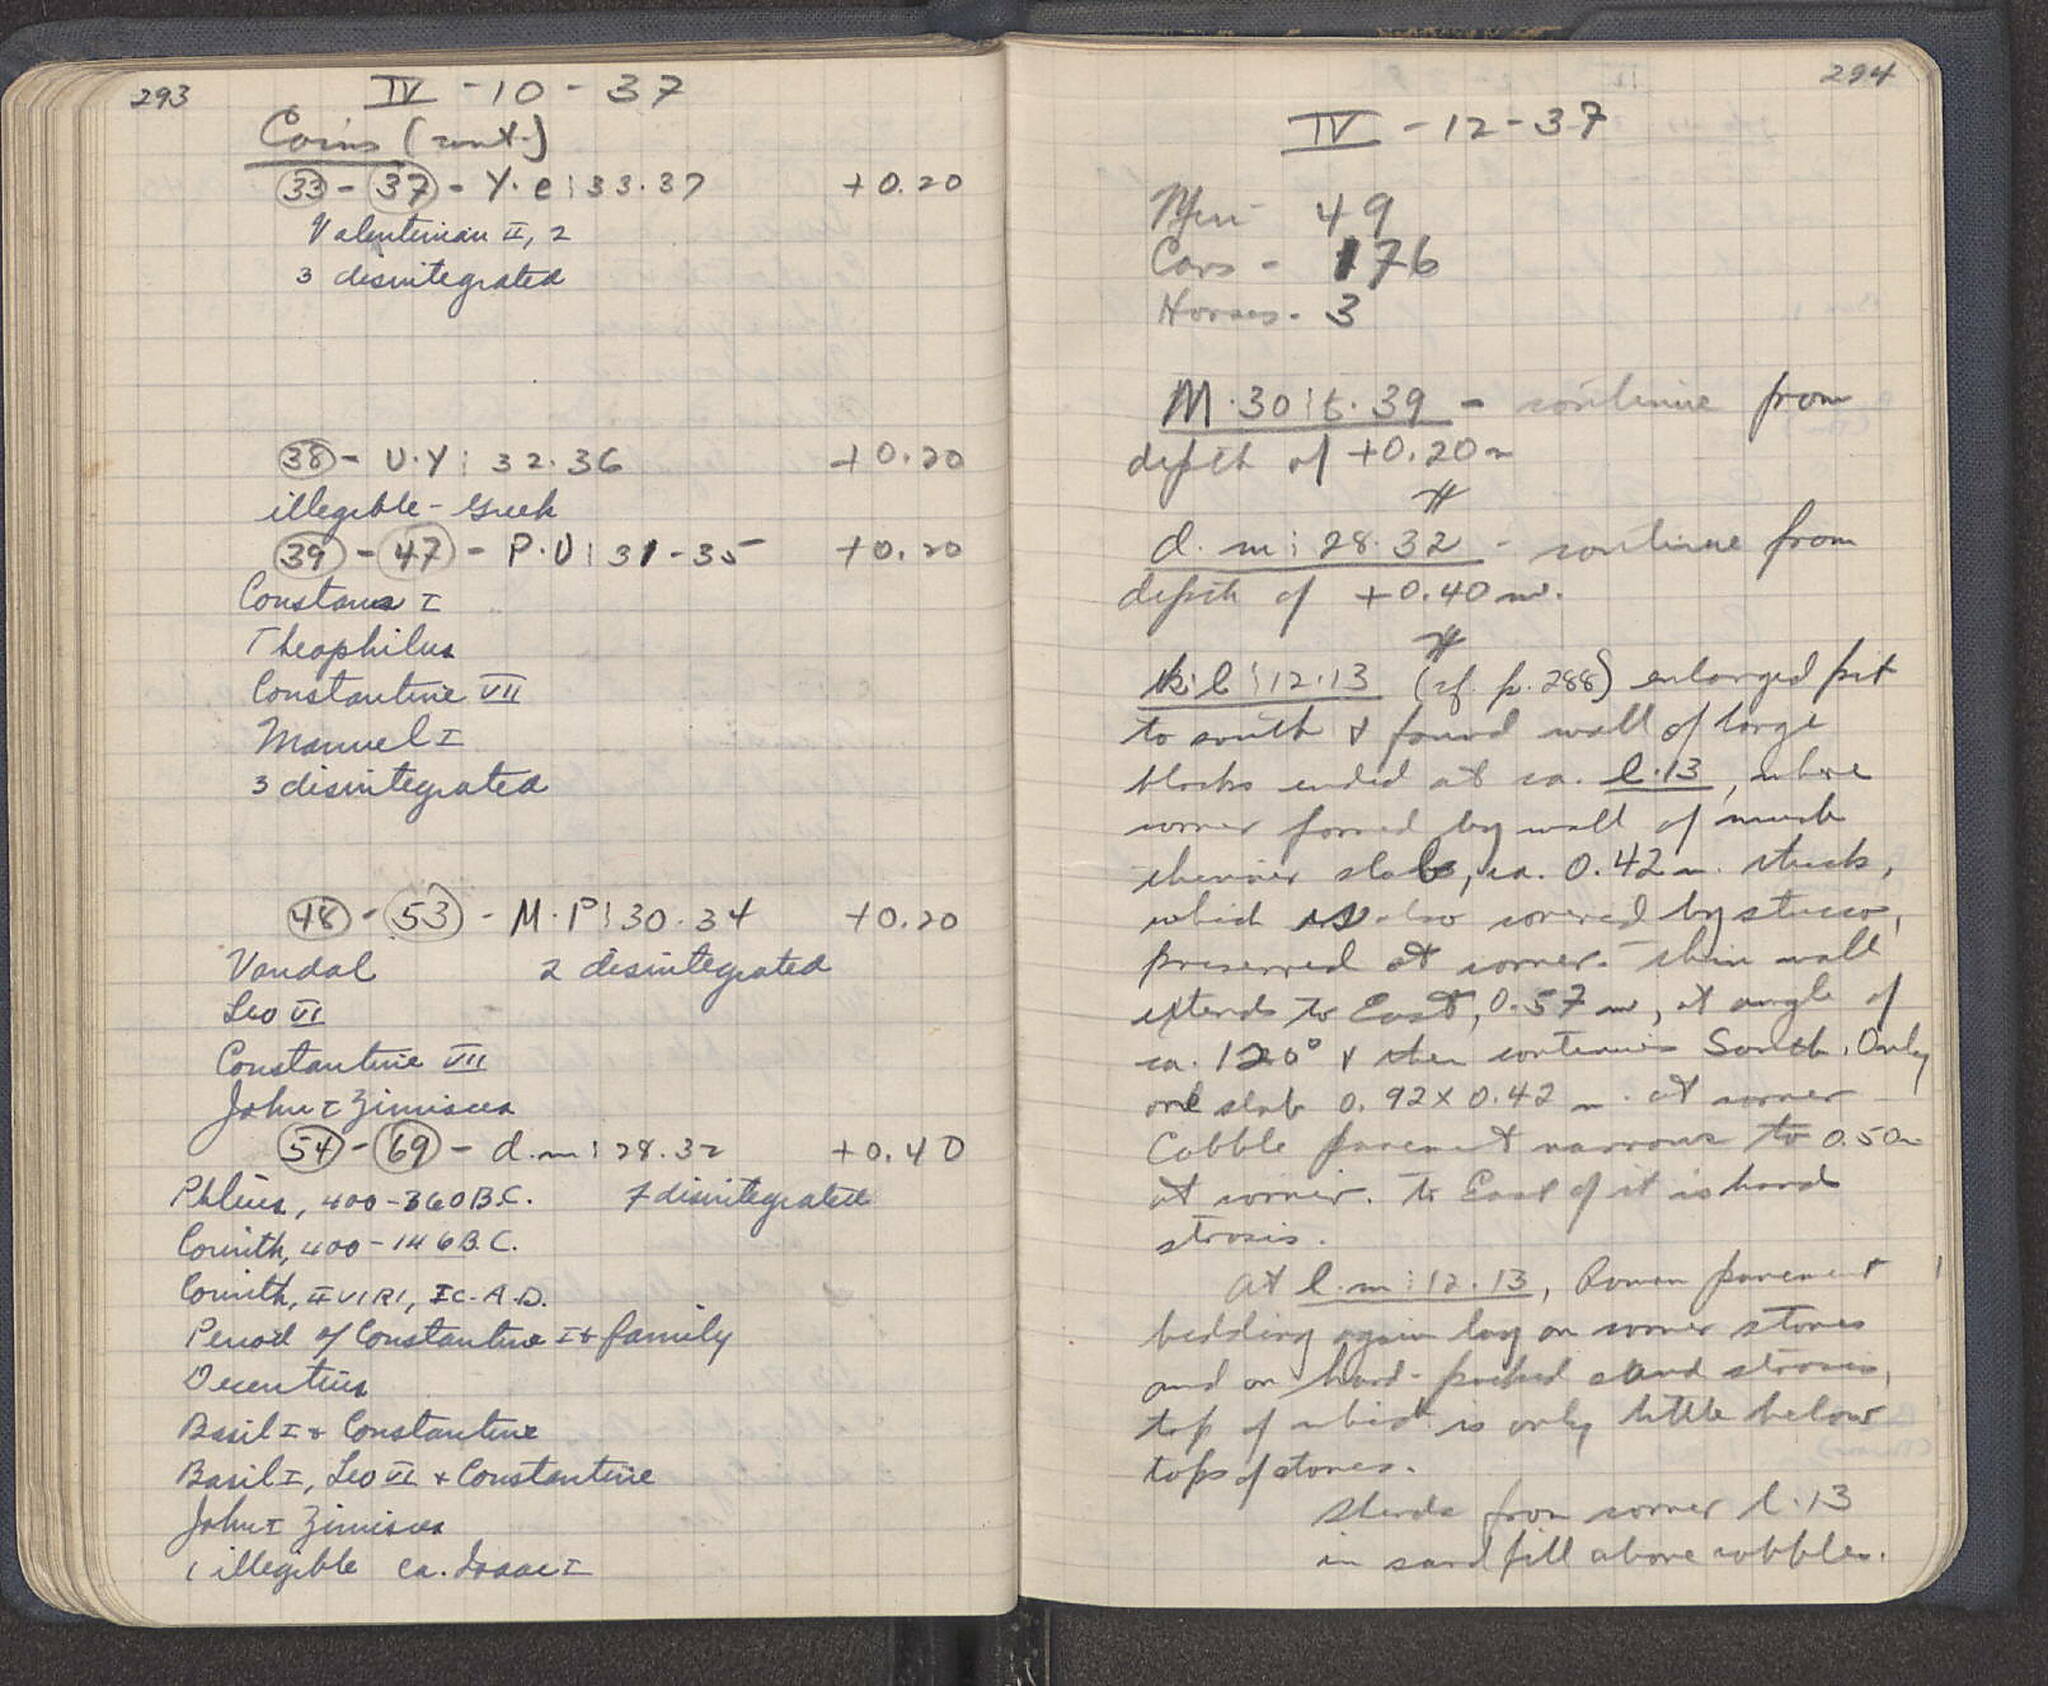 293
IV - 10 - 37
Coins (cont.)
33 - 37 - Y.e : 33.37 +0.20
Valentinian II, 2
3 disintegrated
38 - U.Y : 32.36 +0.20
illegible - Greek
39 - 47 - P.U : 31-35 +0.20
Constans I
Theophilus
Constantine VII
Manuel I
3 disintegrated
48 - 53 - M.P : 30.34 +0.20
Vandal 2 disintegrated
Leo VI
Constantine VII
John I Zimisces
54 - 69 - d.m : 28.32 +0.40
Phlius, 400-360 B.C. 7 disintegrated
Corinth, 400-146 B.C.
Corinth, IIVIRI, I C. A.D.
Period of Constantine I & family
Decentius
Basil I & Constantine
Basil I, Leo VI & Constantine
John I Zimisces
1 illegible ca. Isaac I
294
IV - 12 - 37
Men - 49
Cars - 176
Horses - 3
M.30 : t.39 - continue from
depth of +0.20 m
d.m : 28.32 - continue from
depth of +0.40 m.
k.l : 12.13 (cf. p. 288) enlarged pit
to south & found wall of large
blocks ended at ca. l.13, where
corner formed by wall of much
thinner slabs, ca. 0.42 m. thick,
which is also covered by stucco,
preserved at corner. Thin wall
extends to East, 0.57 m, at angle of
ca. 120° & then continues South. Only
one slab 0.92 x 0.42 m. at corner
Cobble pavement narrows to 0.50 m
at corner. To East of it is hard
strosis.
At l.m : 12.13, Roman pavement
bedding again lay on corner stones
and on hard-packed sand strosis,
top of which is only little below
tops of stones.
Sherds from corner l.13
in sand fill above cobbles.